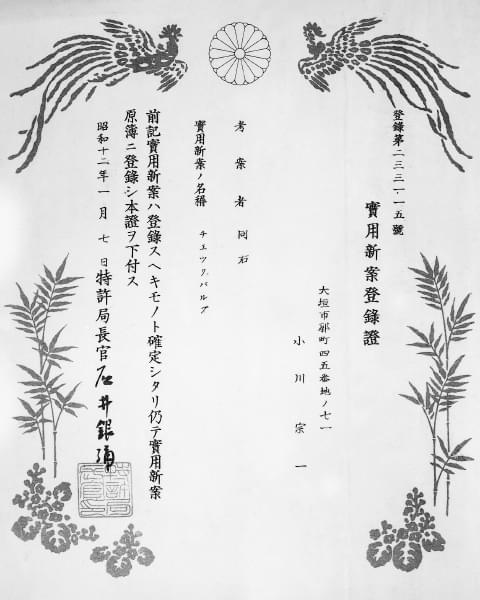 登錄第二三三一一五號
實用新案登錄證
大垣市郭町四五番地ノ七一
小川宗一
考案者 同右
實用新案ノ名稱 チエツクバルブ
前記實用新案ハ登錄スヘキモノト確定シタリ仍テ實用新案
原簿ニ登錄シ本證ヲ下付ス
昭和十二年一月七日 特許局長官 石井銀彌